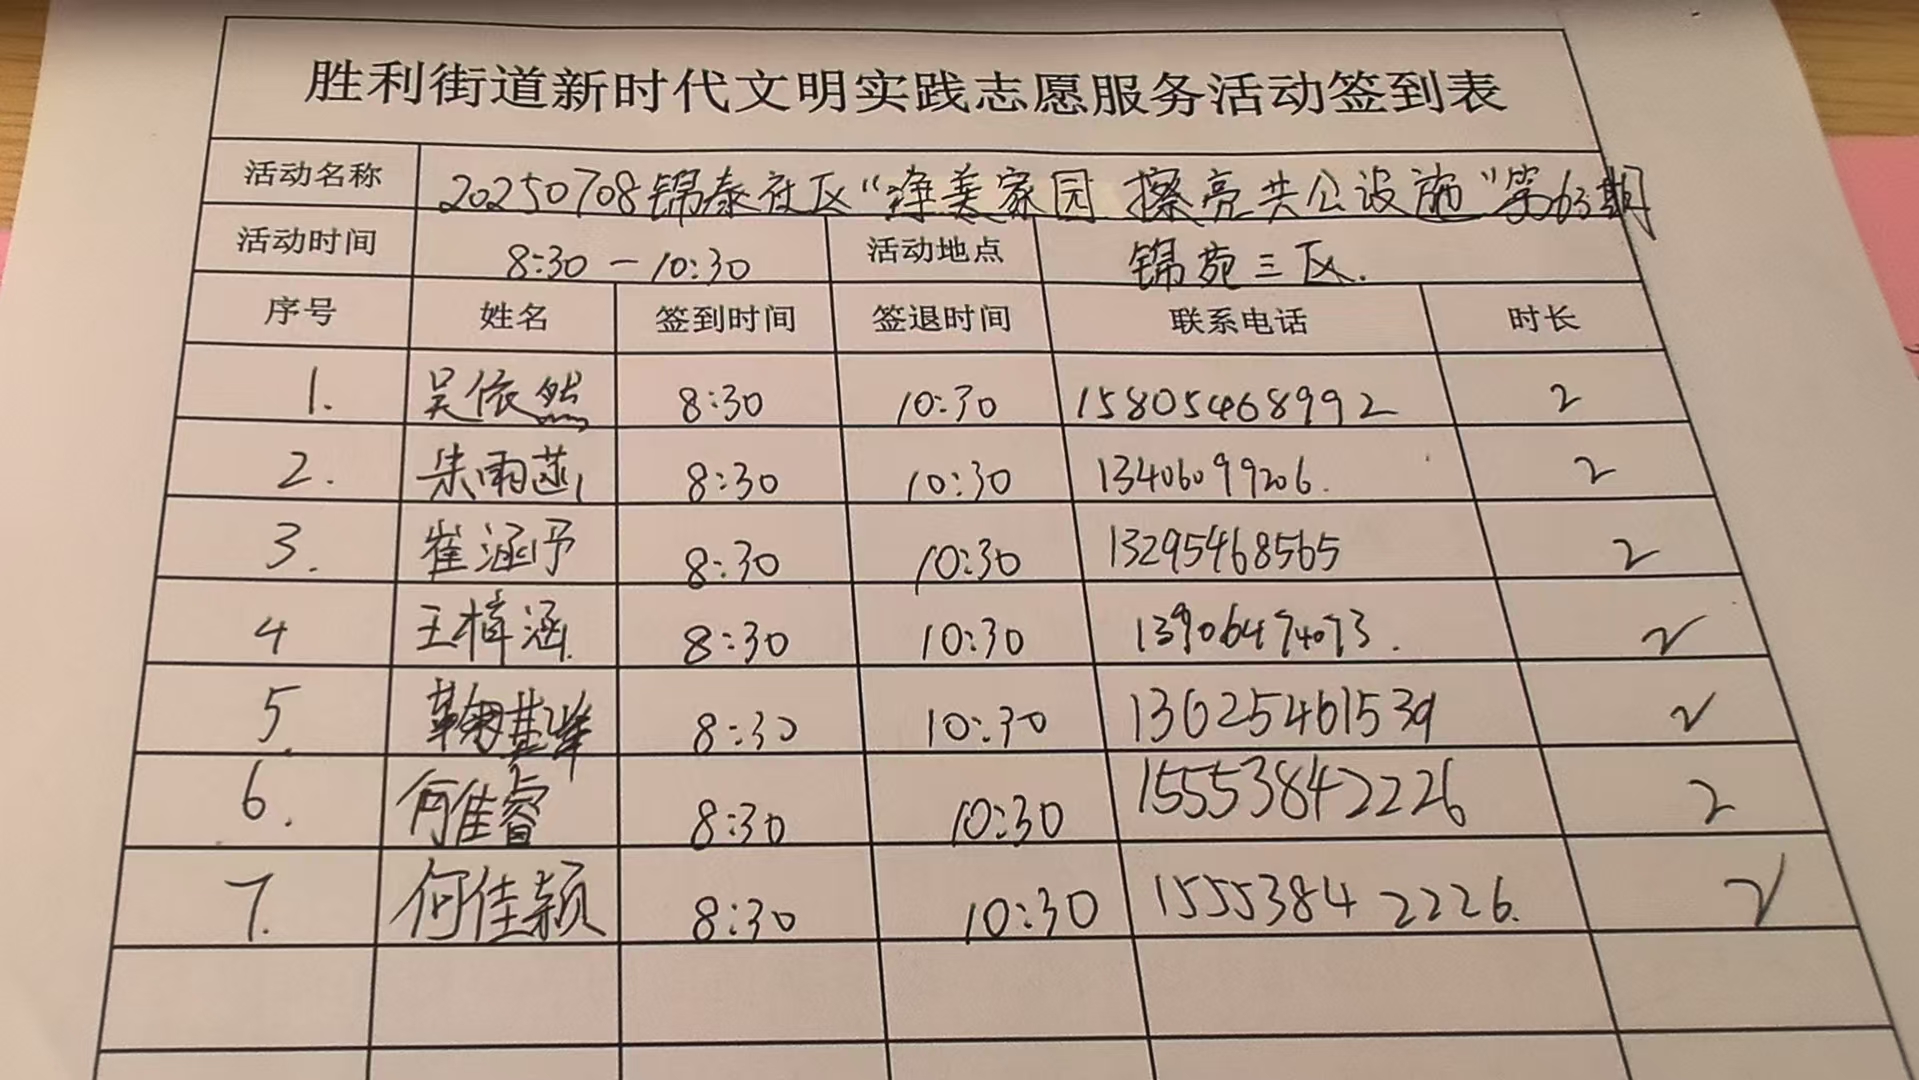 胜利街道新时代文明实践志愿服务活动签到表
活动名称 20250708锦泰社区“净美家园 擦亮共公设施”第63期
活动时间 8:30-10:30 活动地点 锦苑三区.
序号 姓名 签到时间 签退时间 联系电话 时长
1. 吴依然 8:30 10:30 15805468992 2
2. 朱雨菡 8:30 10:30 13406099206. 2
3. 崔涵予 8:30 10:30 13295468565 2
4 王梓涵. 8:30 10:30 13906474073. 2
5. 鞠基峰 8:30 10:30 13625461539 2
6. 何佳睿 8:30 10:30 15553842226 2
7. 何佳颖 8:30 10:30 15553842226. 2